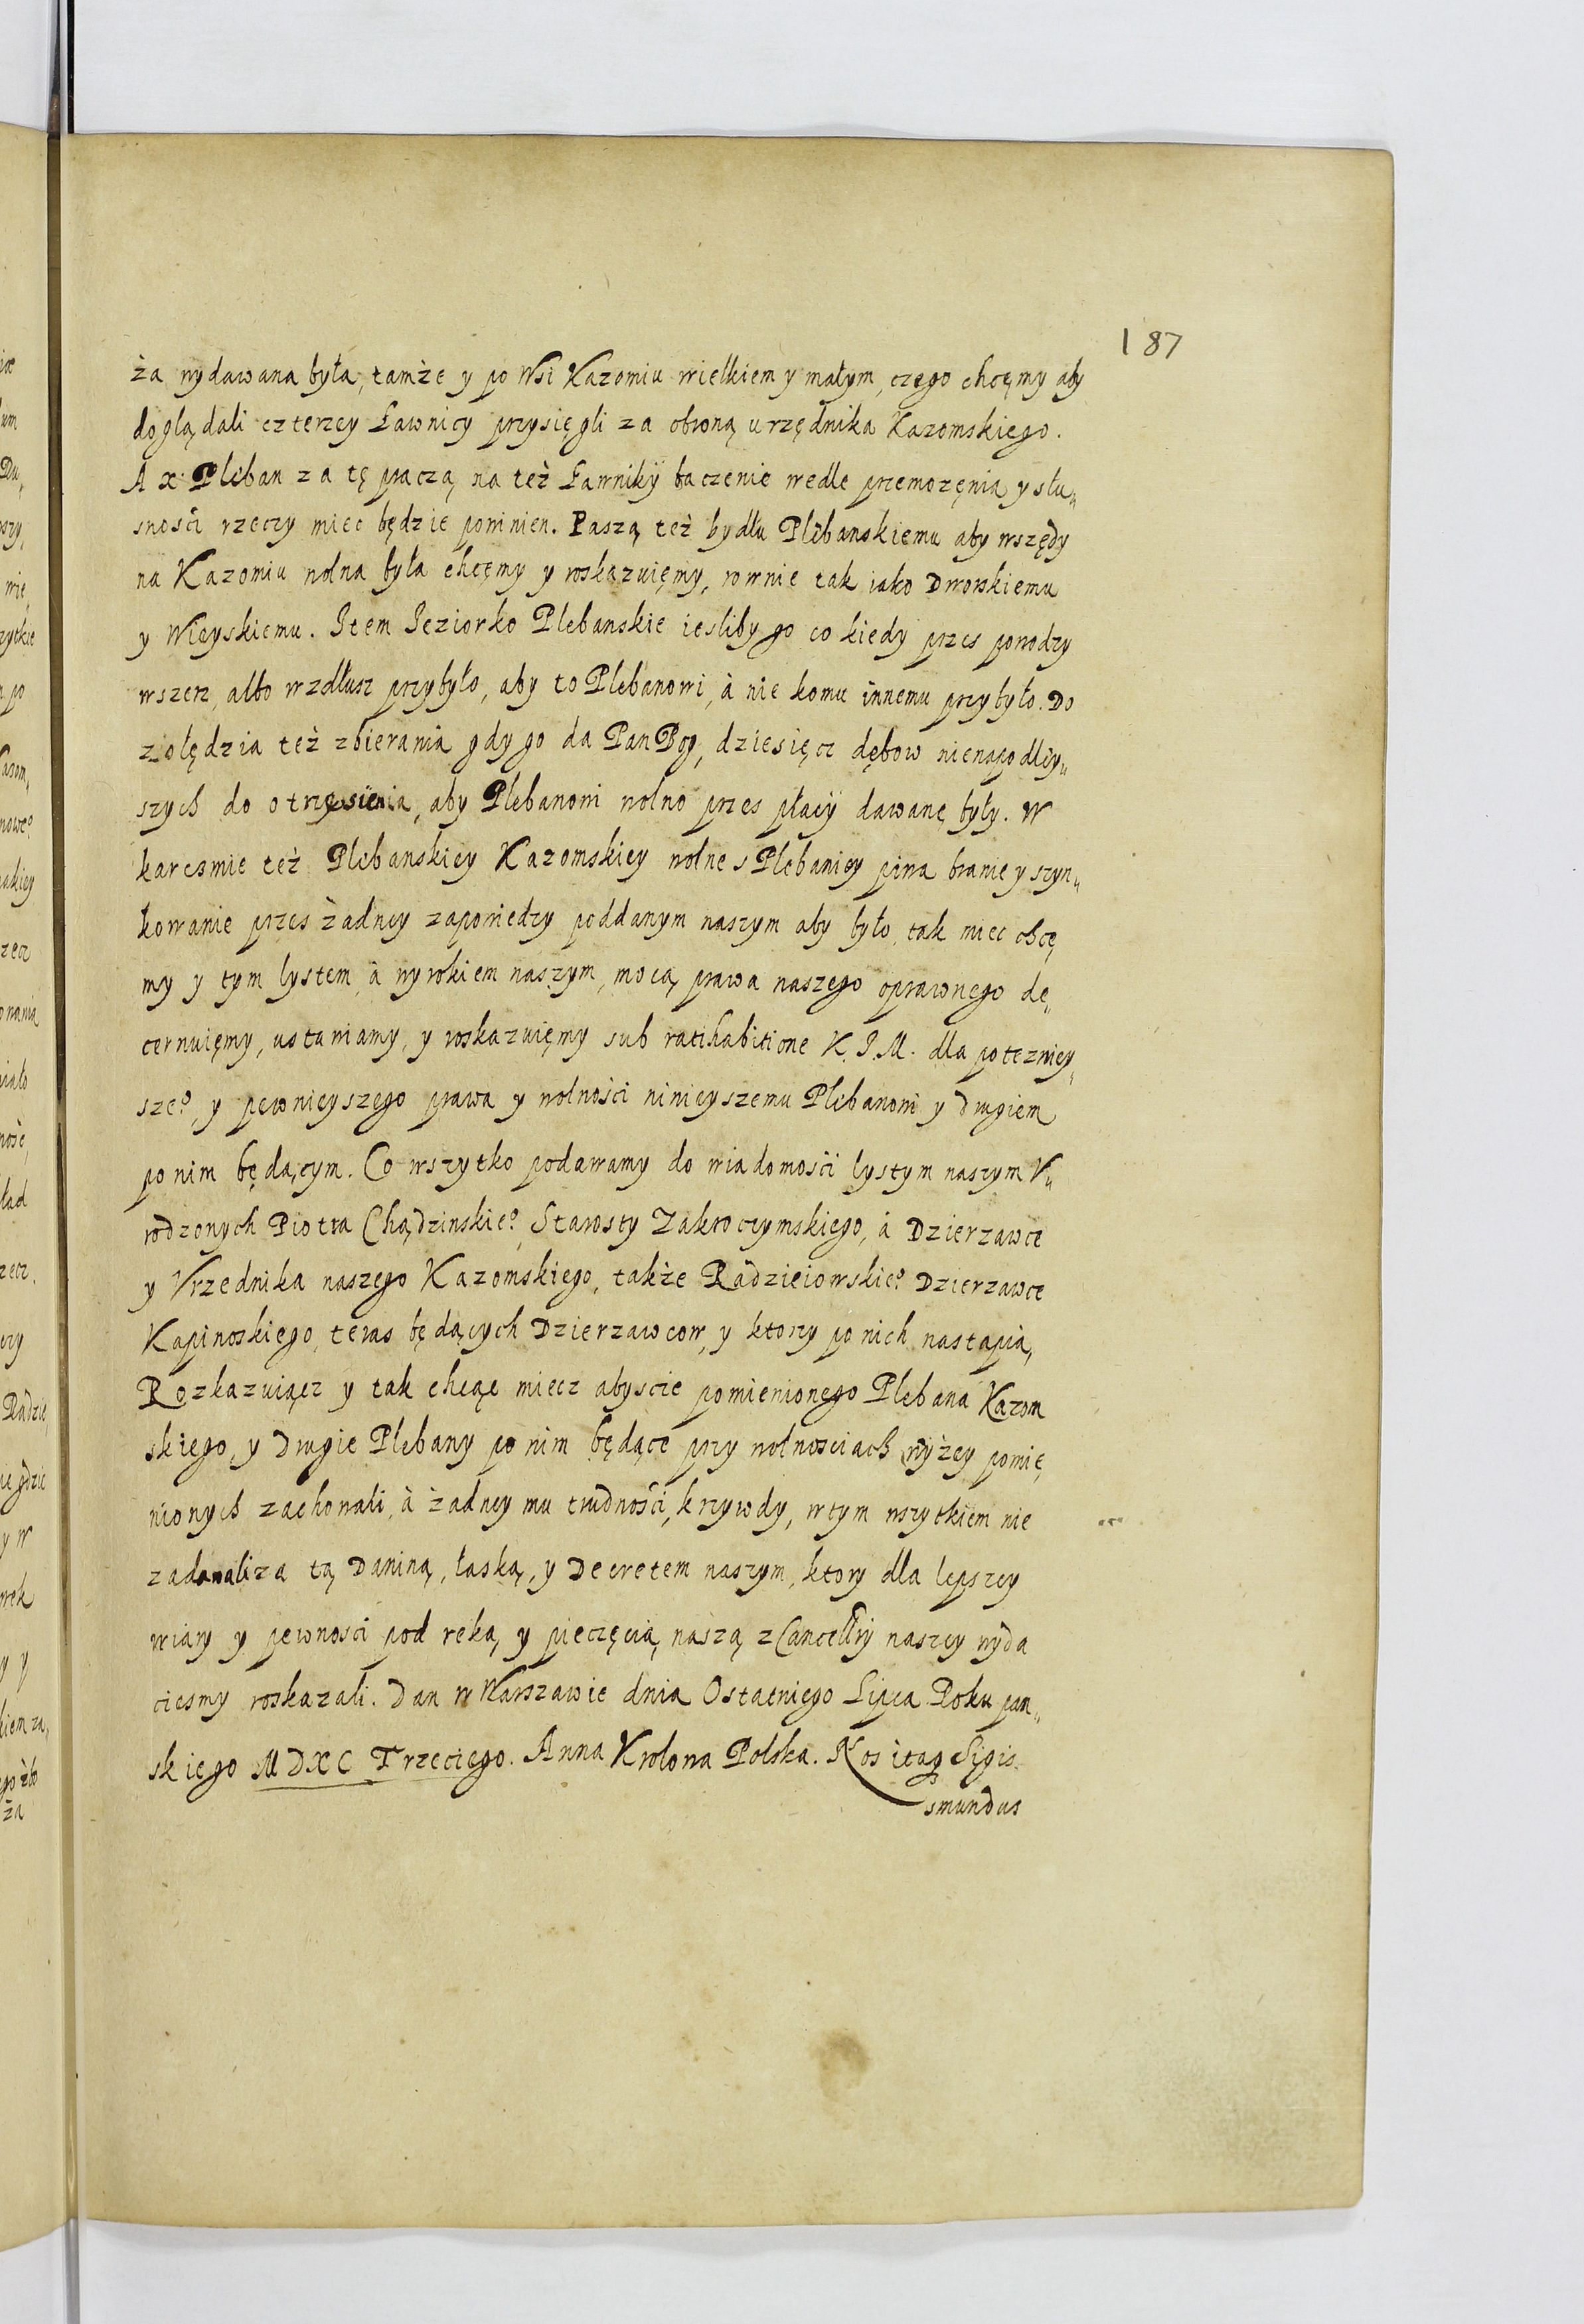 187
ża wydawana była, tamże y po Wsi Kazomiu wielkiem y małym, czego chcęmy aby
doglądali czterzy Ławnicy przysięgli za obroną urzędnika Kazomskiego.
A x: Pleban za tę praczą na też Ławniky baczenie wedle przemozęnia y słu„
snosci rzeczy miec będzie powinien. Paszą też bydłu Plebanskiemu aby wszędy
na Kazomiu wolna była chcęmy y roskazuięmy, rownie tak iako Dworskiemu
y Wieyskiemu. Item Ieziorko Plebanskie iesliby go co kiedy przes powodzy
wszerz, albo wzdłusz przybyło, aby to Plebanowi, à nie komu innemu przybyło. Do
zołędzia też zbierania gdy go da Pan Bog, dziesięcz dębow nienapodley„
szych do otrzęsienia, aby Plebanowi wolno przes płacy dawanę były. W
karcsmie też Plebanskiey Kazomskiey wolne s Plebaniey piwa branie y szyn„
kowanie przes żadney zapowiedzy poddanym naszym aby było, tak miec chcę
my y tym lystem, à wyrokiem naszym, mocą prawa naszego oprawnego de„
cernuięmy, ustawiamy, y roskazuięmy sub ratihabitione K.I.M. dla potezniey„
sze°, y pewnieyszego prawa y wolności ninieyszemu Plebanowi y drugiem
po nim będącym. Co wszytko podawamy do wiadomości lystym naszym V„
rodzonych Piotra Chądzinskie°, Starosty Zakroczymskiego, à Dzierzawce
y Vrzednika naszego Kazomskiego, także Radzieiowskie° Dzierzawce
Kapinoskiego, teras będących Dzierzawcow, y ktorzy po nich nastąpią,
Rozkazuiącz y tak chcąc miecz abyscie pomienionego Plebana Kazom
skiego, y drugie Plebany po nim będące przy wolnosciach wyżey pomie„
nionych zachowali, à żadney mu trudności, krzywdy, w tym wszytkiem nie
zadawali za tą Daniną, łaską, y Decretem naszym, ktory dla lepszey
wiary y pewnosci pod reką y pieczęcią naszą z Cancellry naszey wyda
ciesmy roskazali. Dan w Warszawie dnia Ostatniego Lipca Roku pan„
skiego MDXC Trzeciego. Anna Krolowa Polska. Nos itaq Sigis
smundus